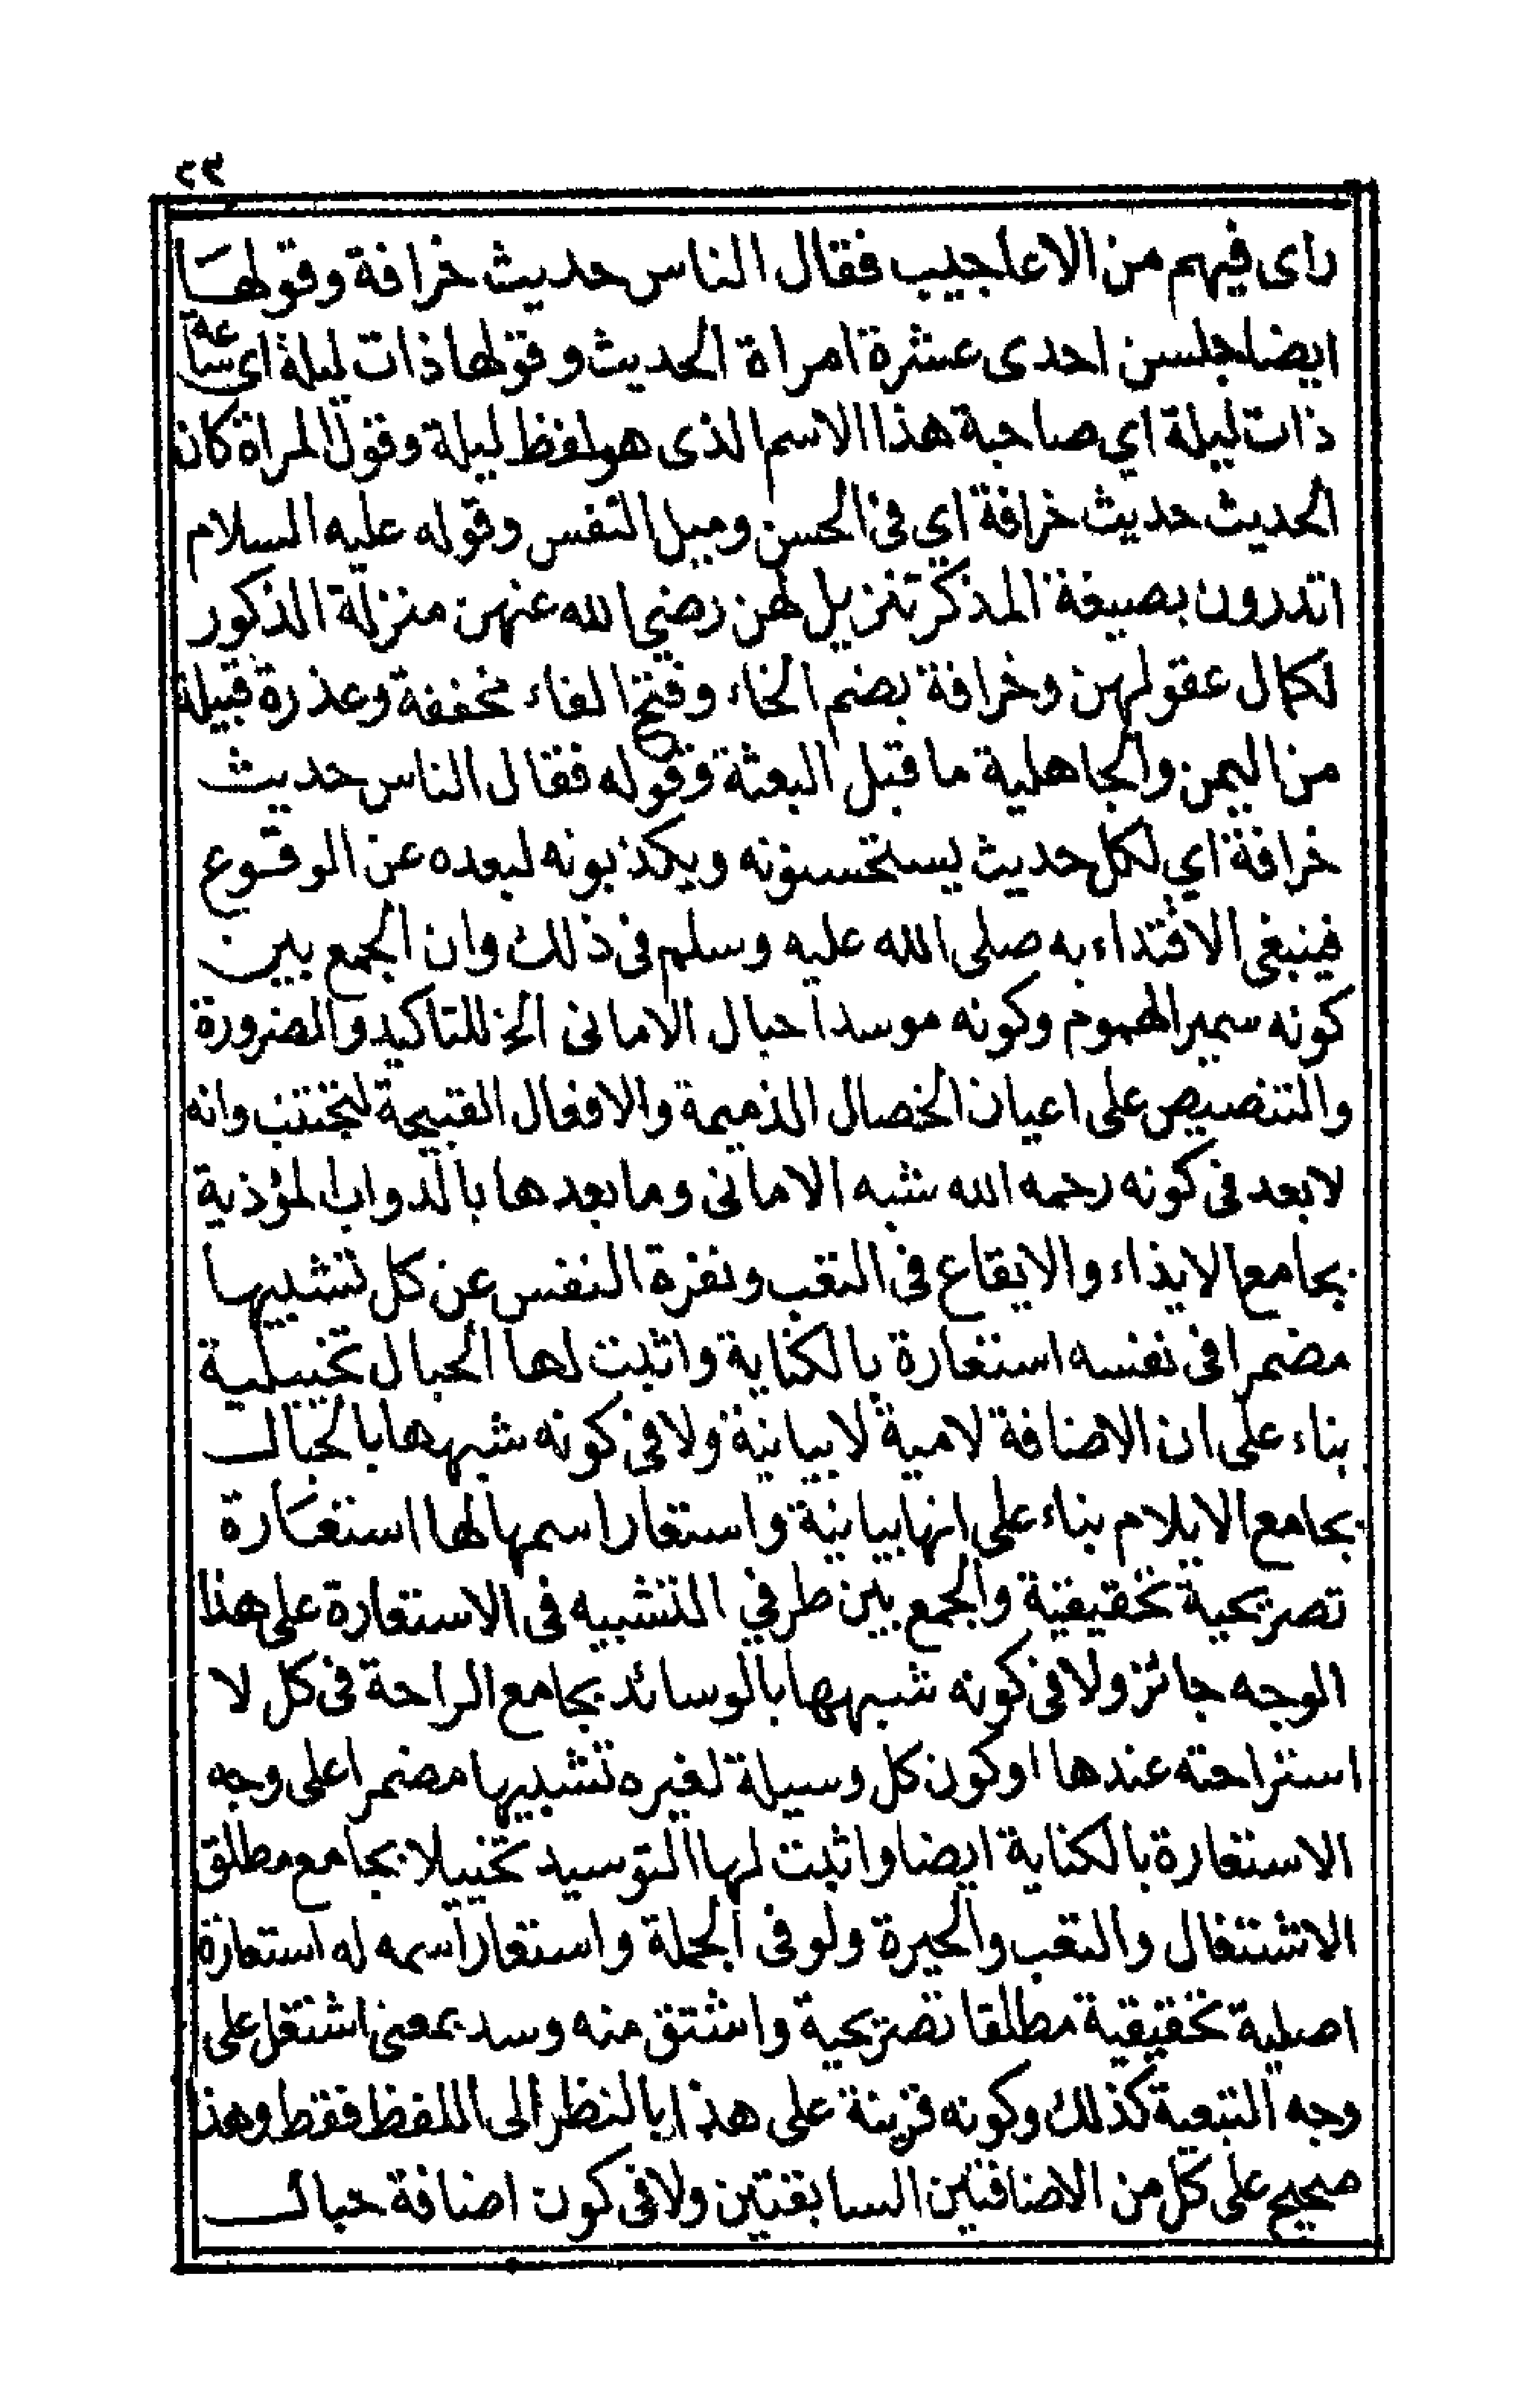 ٢٩
راى فيهم من الاعاجيب فقال الناس حديث خرافة وقولها
ايضا جلسن احدى عشرة امراة الحديث وقولها ذات ليلة اى ساعة
ذات ليلة اي صاحبة هذا الاسم الذى هو لفظ ليلة وقول المراة كان
الحديث حديث خرافة اي في الحسن وميل النفس وقوله عليه السلام
اتدرون بصيغة المذكر تنزيل لهن رضي الله عنهن منزلة الذكور
لكمال عقولهن وخرافة بضم الخاء وفتح الفاء مخففة وعذرة قبيلة
من اليمن والجاهلية ما قبل البعثة وقوله فقال الناس حديث
خرافة اي لكل حديث يستحسنونه ويكذبونه لبعده عن الوقوع
فينبغى الاقتداء به صلى الله عليه وسلم فى ذلك وان الجمع بين
كونه سمير الهموم وكونه موسدا حبال الامانى الخ للتاكيد والضرورة
والتنصيص على اعيان الخصال الذميمة والافعال القبيحة لتجتنب وانه
لا بعد فى كونه رحمه الله شبه الامانى وما بعدها بالدواب المؤذية
بجامع الايذاء والايقاع فى التعب ونفرة النفس عن كل تشبيها
مضمرا فى نفسه استعارة بالكناية واثبت لها الحبال تخييلية
بناء على ان الاضافة لامية لا بيانية ولا فى كونه شبهها بالحبال
بجامع الايلام بناء على انها بيانية واستعار اسمها لها استعارة
تصريحية تحقيقية والجمع بين طرفي التشبيه فى الاستعارة على هذا
الوجه جائز ولا فى كونه شبهها بالوسائد بجامع الراحة فى كل لا
استراحته عندها او كون كل وسيلة لغيره تشبيها مضمرا على وجه
الاستعارة بالكناية ايضا واثبت لها التوسيد تخييلا بجامع مطلق
الاشتغال والتعب والحيرة ولو فى الجملة واستعار اسمه له استعارة
اصلية تحقيقية مطلقا تصريحية واشتق منه وسد بمعنى اشتغل على
وجه التبعية كذلك وكونه قرينة على هذا بالنظر الى اللفظ فقط وهذا
صحيح على كل من الاضافتين السابقتين ولا فى كون اضافة حبال